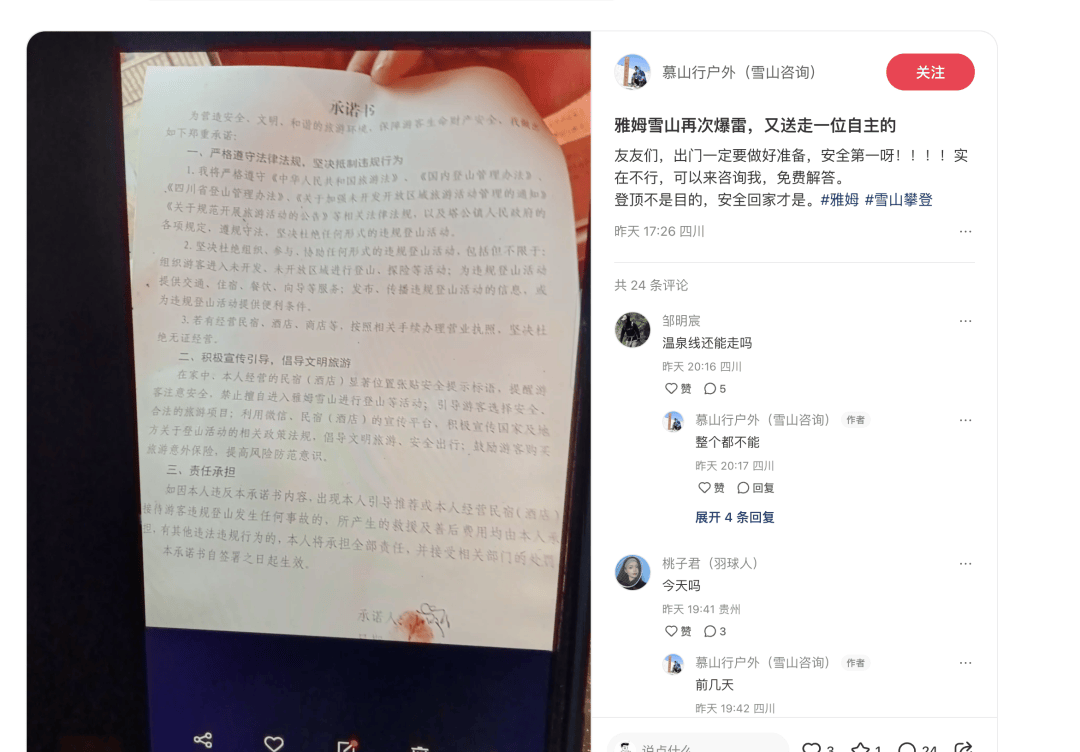 承诺书
为营造安全、文明、和谐的旅游环境，保障游客生命财产安全，我做出
如下郑重承诺：
一、严格遵守法律法规，坚决抵制违规行为
1.我将严格遵守《中华人民共和国旅游法》、《国内登山管理办法》、
《四川省登山管理办法》、《关于加强未开发开放区域旅游活动管理的通知》
《关于规范开展旅游活动的公告》等相关法律法规，以及塔公镇人民政府的
各项规定，遵规守法，坚决杜绝任何形式的违规登山活动。
2.坚决杜绝组织、参与、协助任何形式的违规登山活动，包括但不限于：
组织游客进入未开发、未开放区域进行登山、探险等活动；为违规登山活动
提供交通、住宿、餐饮、向导等服务；发布、传播违规登山活动的信息，或
为违规登山活动提供便利条件。
3.若有经营民宿、酒店、商店等，按照相关手续办理营业执照，坚决杜
绝无证经营。
二、积极宣传引导，倡导文明旅游
在家中、本人经营的民宿（酒店）显著位置张贴安全提示标语，提醒游
客注意安全，禁止擅自进入雅姆雪山进行登山等活动；引导游客选择安全、
合法的旅游项目；利用微信、民宿（酒店）的宣传平台、积极宣传国家及地
方关于登山活动的相关政策法规，倡导文明旅游、安全出行；鼓励游客购买
旅游意外保险，提高风险防范意识。
三、责任承担
如因本人违反本承诺书内容，出现本人引导推荐或本人经营民宿（酒店）
接待游客违规登山发生任何事故的，所产生的救援及善后费用均由本人承
担，有其他违法违规行为的，本人将承担全部责任，并接受相关部门的处罚
本承诺书自签署之日起生效。
承诺人：
慕山行户外（雪山咨询）
关注
雅姆雪山再次爆雷，又送走一位自主的
友友们，出门一定要做好准备，安全第一呀！！！！实
在不行，可以来咨询我，免费解答。
登顶不是目的，安全回家才是。#雅姆 #雪山攀登
昨天 17:26 四川
共 24 条评论
邹明宸
温泉线还能走吗
昨天 20:16 四川
赞 5
慕山行户外（雪山咨询） 作者
整个都不能
昨天 20:17 四川
赞 回复
展开 4 条回复
桃子君（羽球人）
今天吗
昨天 19:41 贵州
赞 3
慕山行户外（雪山咨询） 作者
前几天
昨天 19:42 四川
说点什么
3 1 24